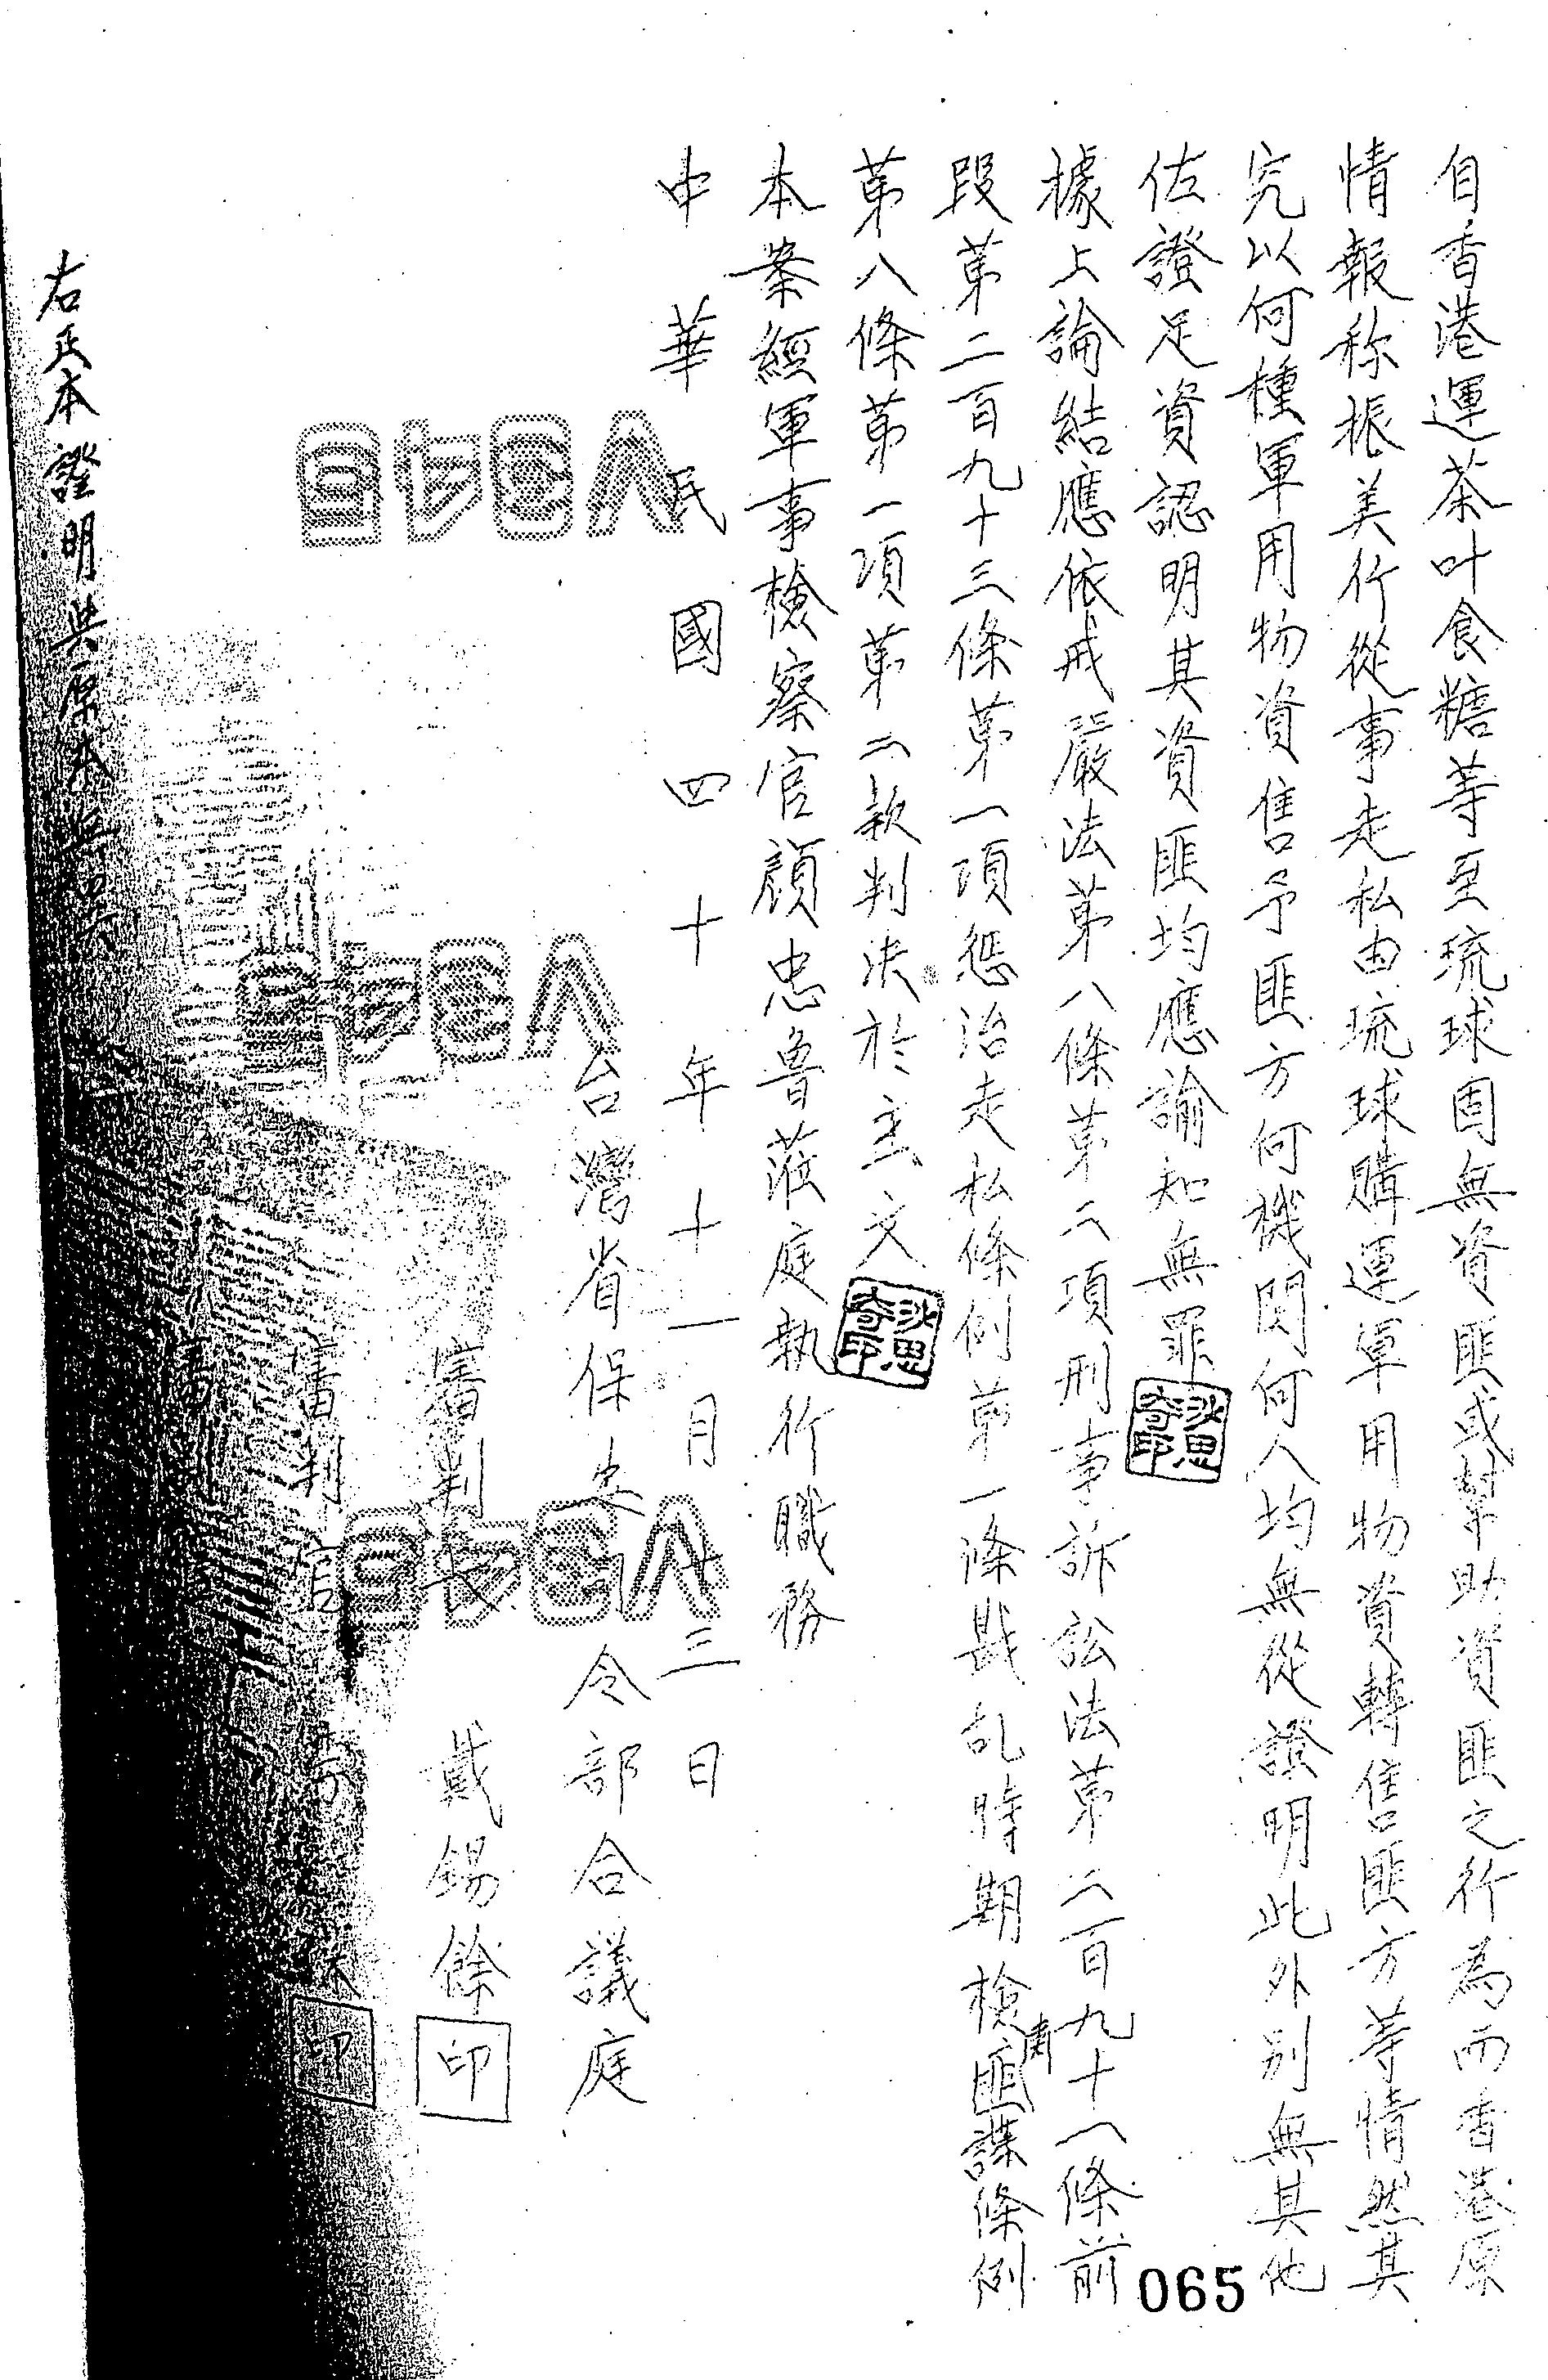 自香港運茶叶食糖等至琉球固無資匪或幫助資匪之行為而香港原
情報称振美行從事走私由琉球購運軍用物資轉售匪方等情然其
究以何種軍用物資售予匪方何機関何人均無從證明此外別無其他
佐證足資認明其資匪均應諭知無罪
沙思奇印
據上論結應依戒嚴法第八條第二項刑事訴訟法第二百九十一條前
段第二百九十三條第一項懲治走私條例第一條戡乱時期檢肅匪諜條例
第八條第一項第二款判決於主文
沙思奇印
本案經軍事檢察官顏忠魯蒞庭執行職務
中華民國四十年十一月十三日
台灣省保安司令部合議庭
審判長 戴錫餘 印
審判官 印
右正本證明與原本無異
V345
V345
V345
065